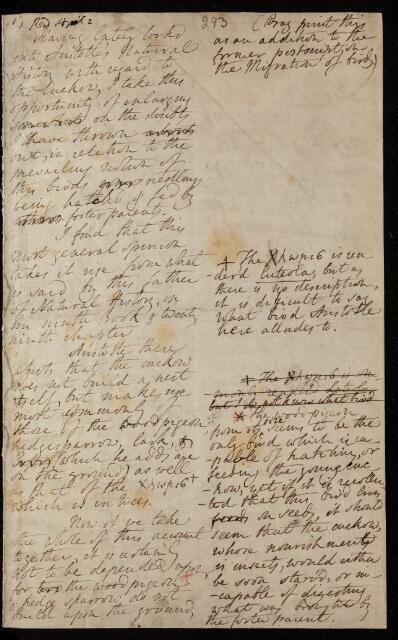 293
Having lately looked
into Aristotle's Natural
History with regard to
the Cuckow, I take this
opportunity of enlarging
on the doubts
I have thrown
out, in relation to the
prevailing notion of
this birds nestlings
being hatched & fed by
foster parents.
I find that this
most general opinion
takes it rise from what
is said by this father
of Natural History, in
his ninth Book & twenty
ninth chapter.
Aristotle there
asserts that the cuckow
does not build a nest
itself, but makes use
most commonly
those of the wood pigeon
hedge sparrow, lark, &
which he adds are
on the ground, as well
as that of the Χλωρις +
which is in trees.
Now if we take
the whole of this account
together, it is certainly
not to be depended upon,
for the wood pigeon
& hedge sparrow do not
build upon the ground,
(Pray print this
as an addition to the
former postscript, on
the Migration of birds
+ The Χλωρις is ren
-derd Luteola, but as
there is no description,
it is difficult to say
what bird Aristotle
here alludes to.
+ The Χλωρις is
* The wood pigeon
from size seems to be the
only bird which is ca
-pable of hatching, or
feeding the young cuc
-kow, yet if it is recollec
-ted that this bird lives
on seeds, it should
seem that the cuckow,
whose nourishment
is insects, would either
be soon starv'd, or in
-capable of digesting
what was brought by
the foster parent.